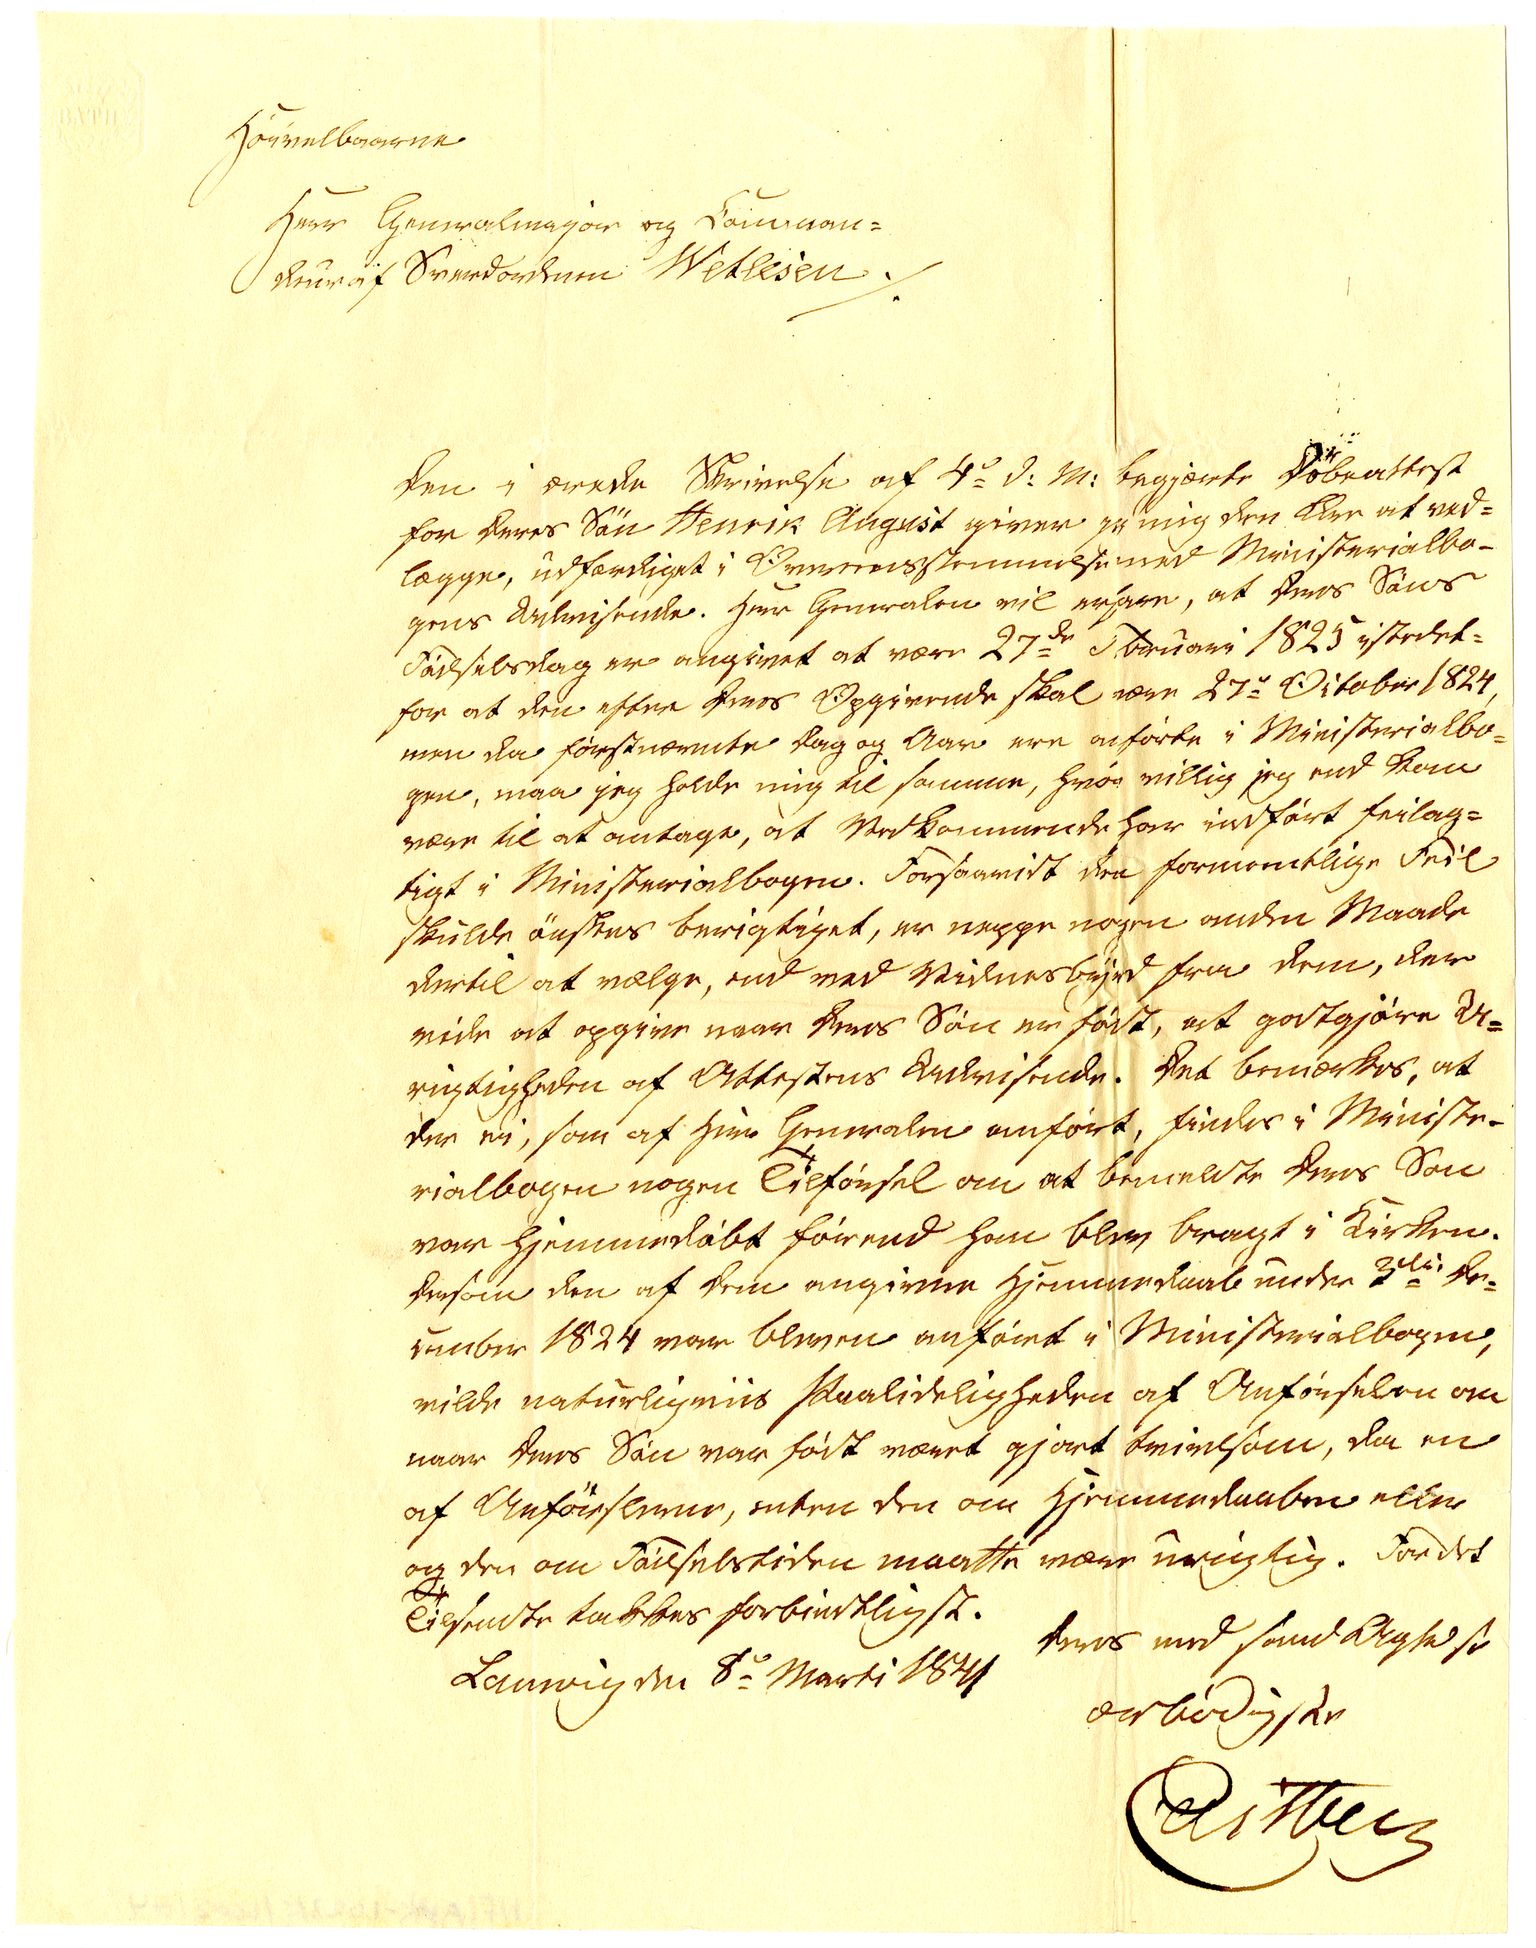 Höivelbaarne
Herr Generalmajor og Comman=
deur af Sværdordenen Wetlesen ./.
Den i ærede Skrivelse af 4de d: M: begjærte Döbeattest
for Deres Sön Henrik August giver jeg mig den Ære at ved=
lægge, udfærdiget i Overeensstemmelse med Ministerialbo-
gens Udvisende. Herr Generalen vil erfare, at Deres Söns
Födselsdag er angivet at være 27de Februari 1825 istedet=
for at den efter Deres Opgivende skal være 27de October 1824,
men da förstnævnte Dag og Aar ere anförte i Ministerialbo=
gen, maa jeg holde mig til samme, hvor villig jeg end kan
være til at antage, at Vedkommende har indfört feilag=
tigt i Ministerialbogen. Forsaavidt den formentlige Feil
skulde önskes berigtiget, er neppe nogen anden Maade
dertil at vælge, end ved Vidnesbyrd fra dem, der
vide at opgive naar Deres Sön er födt, at godtgjöre U=
rigtigheden af Attestens Udvisende. Det bemærkes, at
der ei, som af Herr Generalen anfört, findes i Ministe-
rialbogen nogen Tilförsel om at bemeldte Deres Sön
var hjemmedöbt förend han blev bragt i Kirken.
Dersom den af Dem angivne Hjemmedaab under 3die De=
cember 1824 var bleven anfört i Ministerialbogen,
vilde naturligviis Paalideligheden af Anförselen om
naar Deres Sön var födt været gjort tvivlsom, da en
af Anförslerne, enten den om Hjemmedaaben eller
og den om Födselstiden maatte være urigtig. For det
Tilsendte takkes forbindtligst.
Laurvig den 8de Marti 1841
Deres med sand Agtelse
ærbödigste